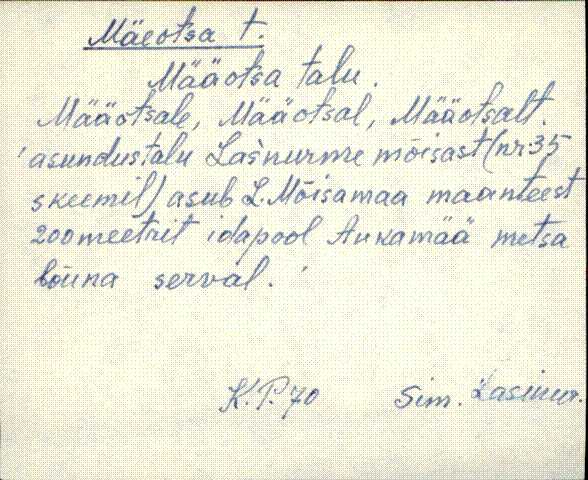 Mäeotsa t.
Määotsa talu.
Määotsale, Määotsal, Määotsalt.
asundustalu Lašnurme mõisast (nr. 35
skeemil) asub L. Mõisamaa maanteest
200 meetrit idapool Aukamää metsa
lõuna serval.
K. P. 70 Sim. Lasinur.